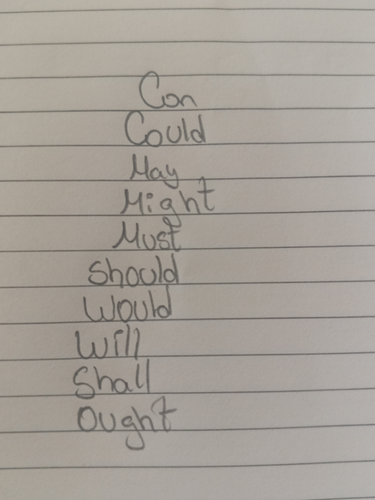 Can
Could
May
Might
Must
Should
Would
Will
Shall
Ought